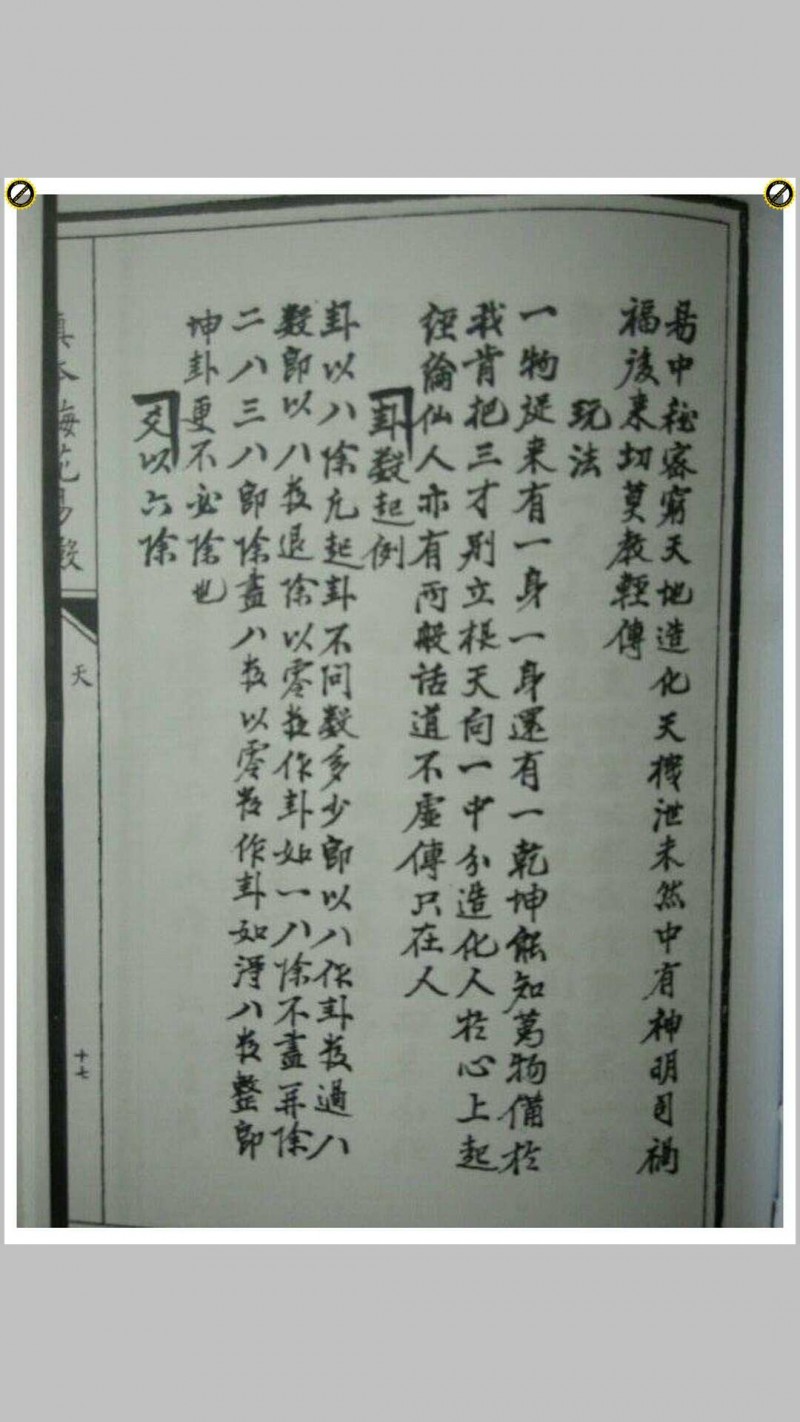 易中秘密窮天地造化天機泄未然中有神明司禍
福後来切莫教輕傳
玩法
一物從来有一身一身還有一乾坤能知萬物備於
我肯把三才别立根天向一中分造化人於心上起
經綸仙人亦有兩般話道不虛傳只在人
卦數起例
卦以八除凡起卦不问數多少即以八作卦數過八
數即以八數退除以零數作卦如一八除不盡再除
二八三八即除盡八數以零數作卦如得八數整即
坤卦更不必除也
爻以六除
真本梅花易數
天
十七